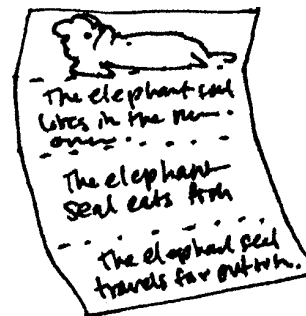 The elephant seal
lives in the
The elephant
seal eats fish
The elephant seal
travels far